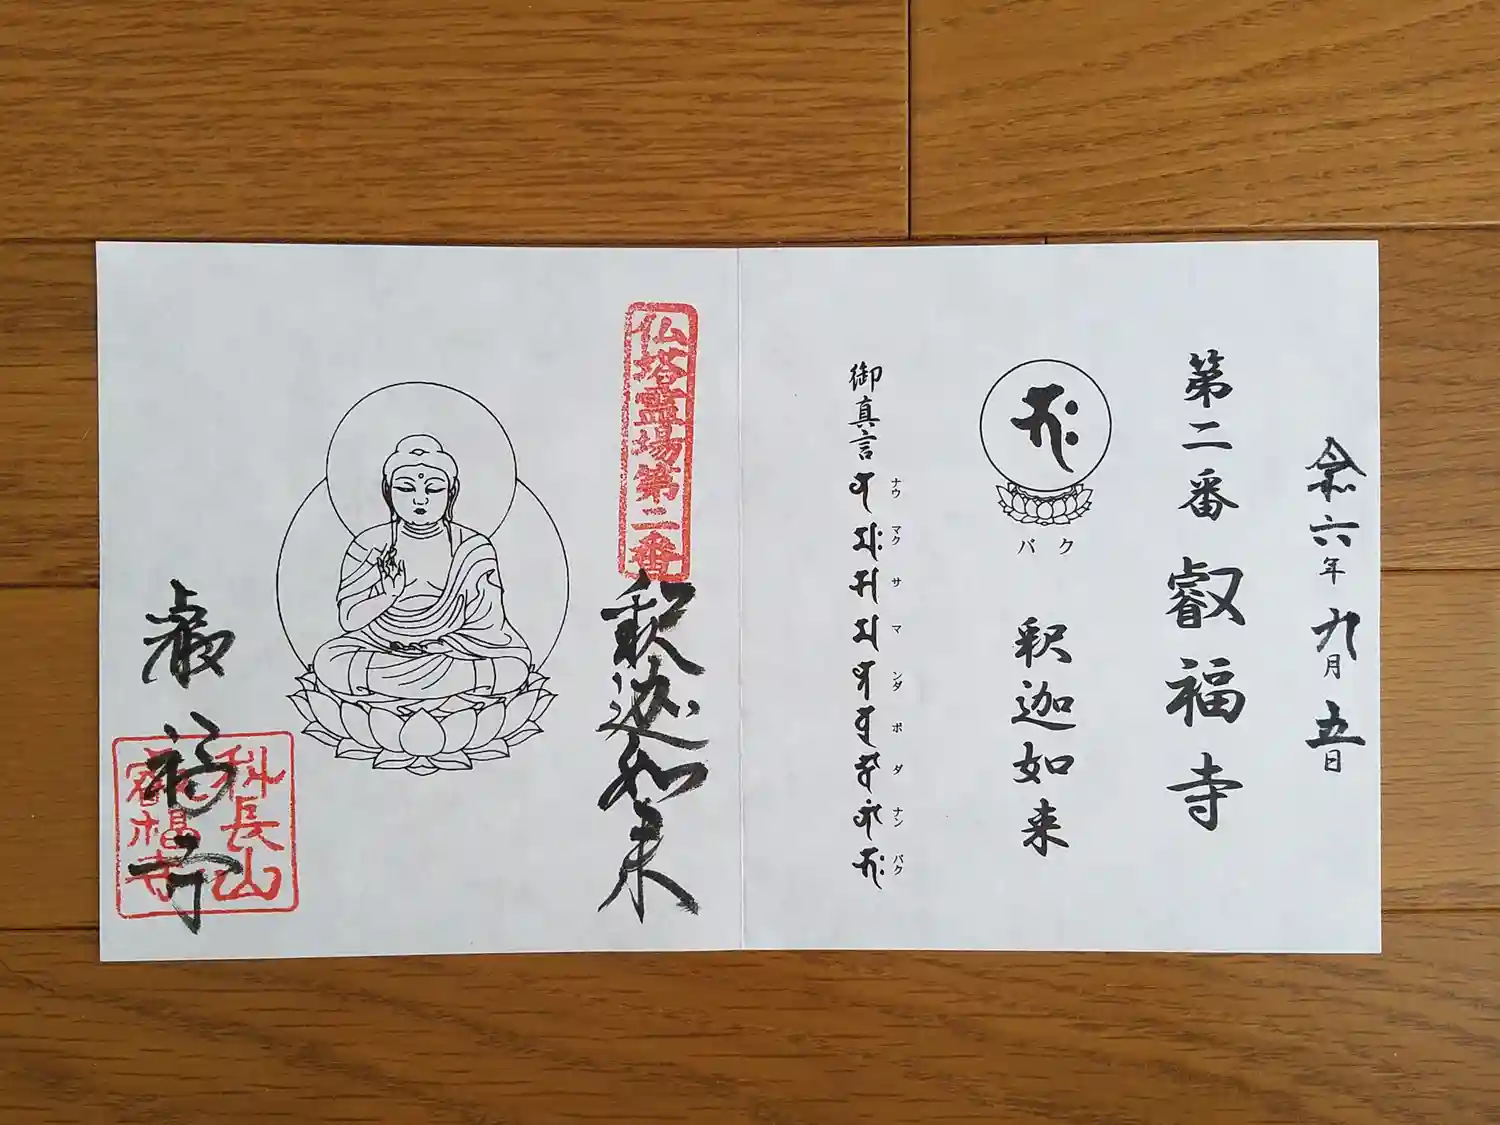 令和六年九月五日
第二番 叡福寺
バク
釈迦如来
御真言
ナウマクサマンダボダナンバク
仏塔霊場第二番
釈迦如来
叡福寺
科長山
叡福寺